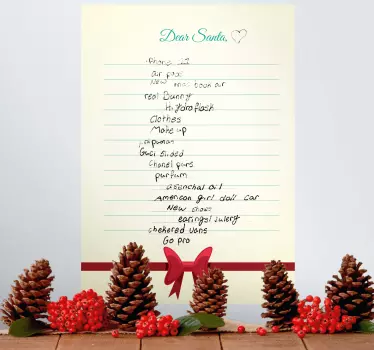 Dear Santa,
iPhone 11
air pod
New mac book air
real Bunny
Hydro flask
clothes
Make up
Gucci slides
Chanel purs
purfum
esenchal oil
American girl doll car
New shoes
earings/julery
chekered vans
Go pro